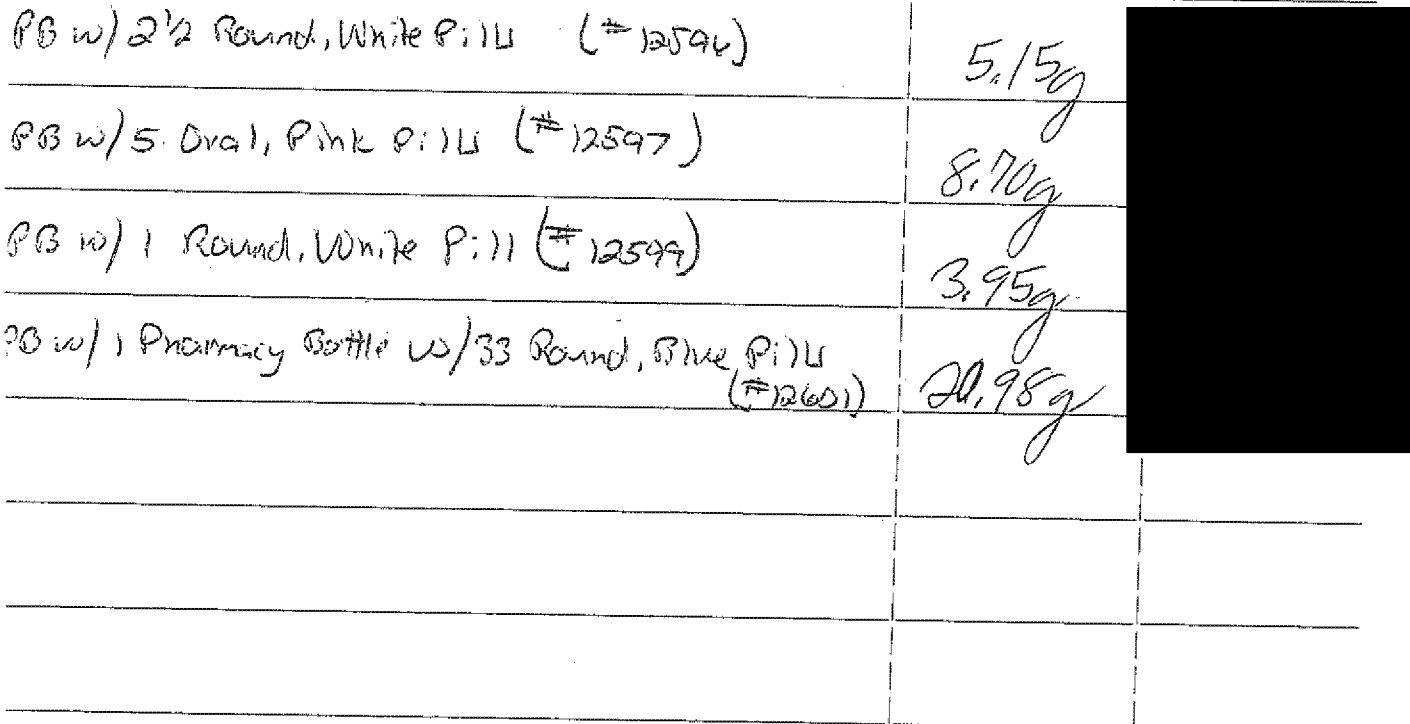 PB w/ 2 1/2 Round, White Pills (#12596)
5.15g
PB w/ 5 Oval, Pink Pills (#12597)
8.70g
PB w/ 1 Round, White Pill (#12599)
3.95g
PB w/ 1 Pharmacy Bottle w/ 33 Round, Blue Pills
(#12601)